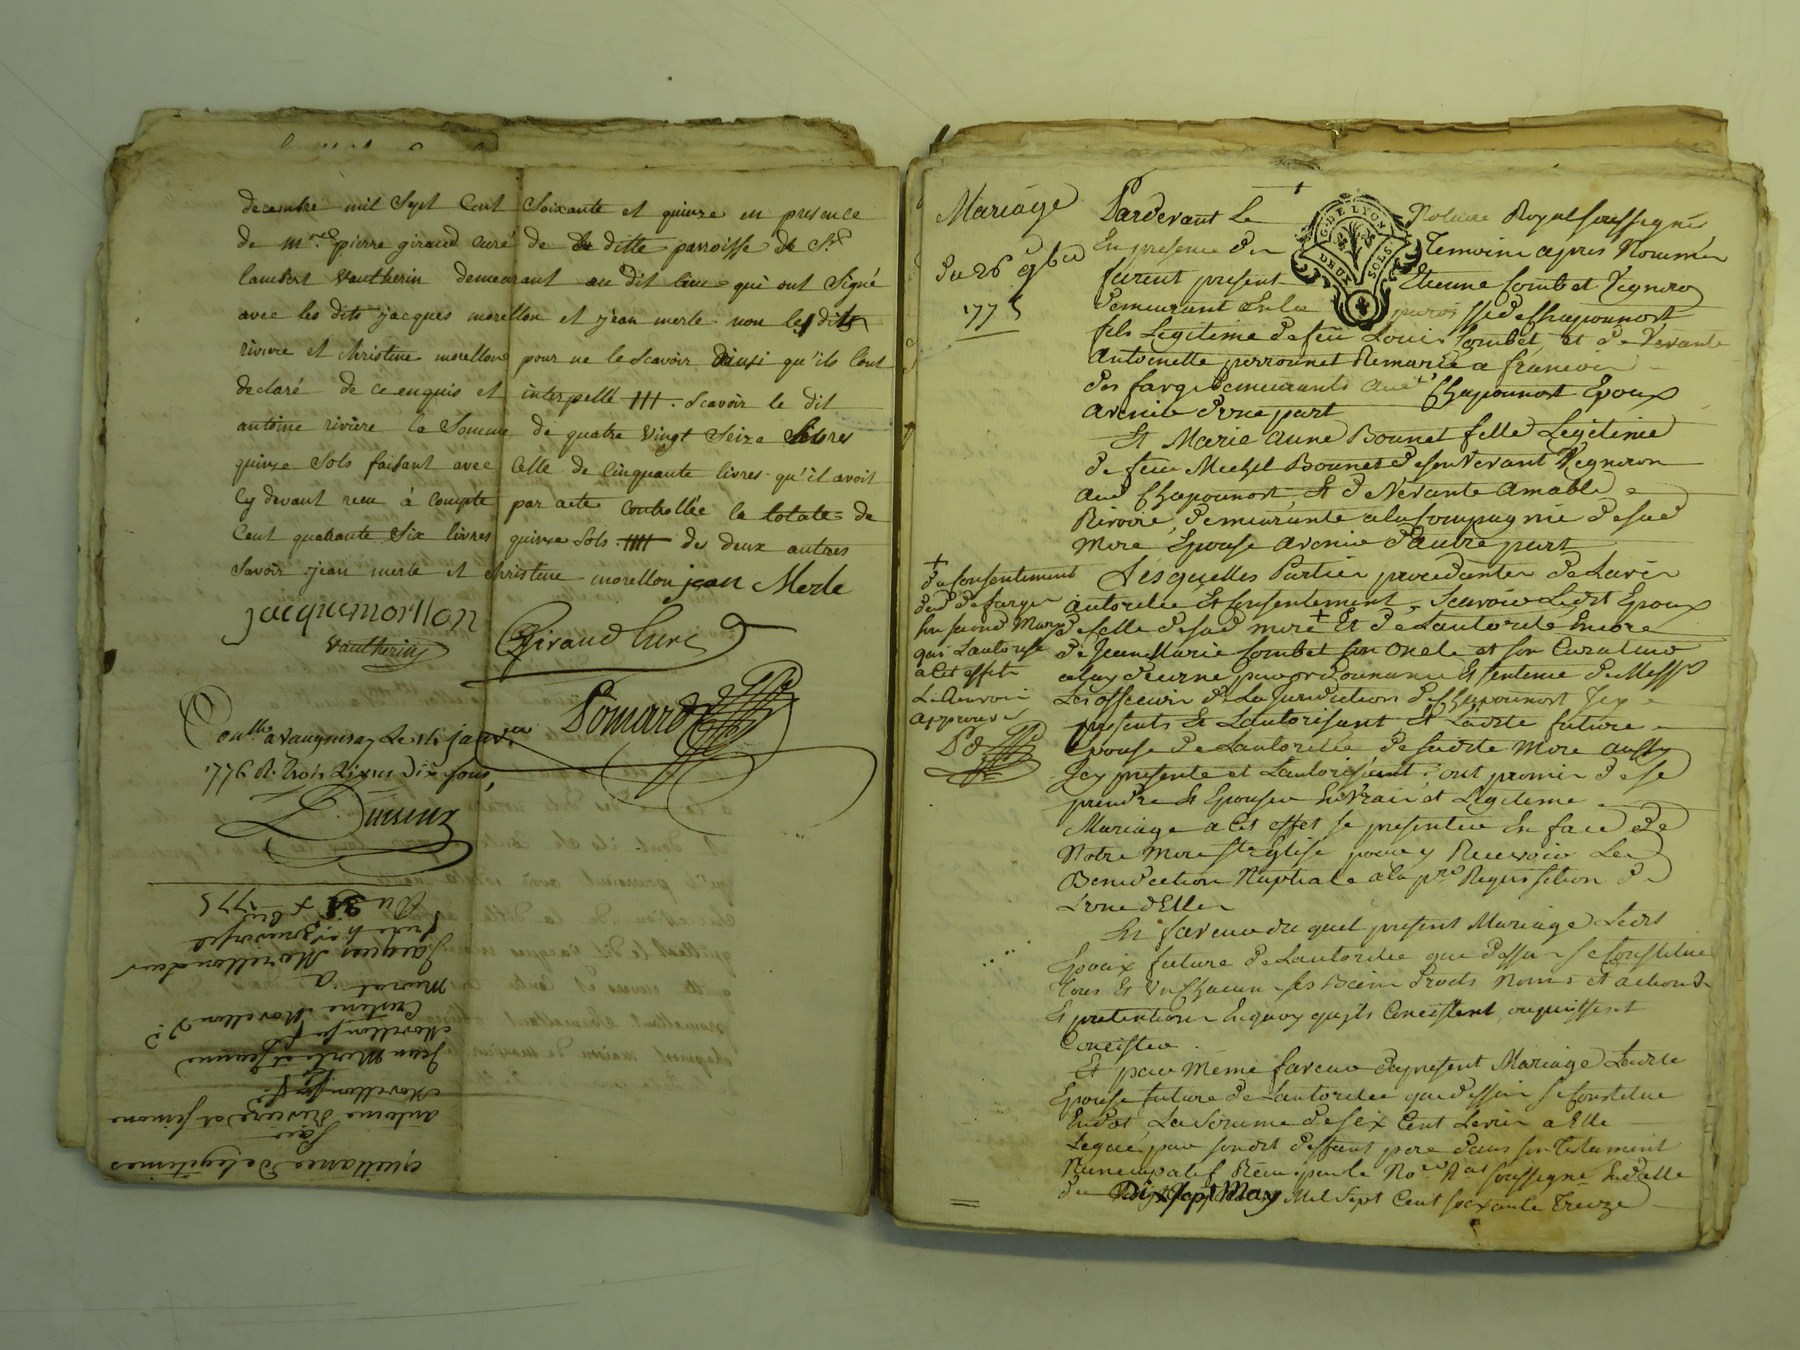 decembre mil Sept Cent Soixante et quinze en presence
de mre pierre giraud curé de la ditte parroisse de Sr
lambert Vautherin demeurant au dit lieu qui ont Signé
avec les dits jacques morellon et jean merle non les dits
riviere et christine morellon pour ne le Scavoir ainsi qu'ils l'ont
declaré de ce enquis et interpellé Scavoir le dit
antoine riviere la Somme de quatre Vingt Seize livres
quinze Sols faisant avec Celle de Cinquante livres qu'il avoit
Cy devant receu à compte par acte Controllée la totale de
Cent quarante Six livres quinze Sols des deux autres
Savoir jean merle et christine morellon jean Merle
jacque morllon
Vautherin Giraud Curé
Ponard
Conllé a Vaugneray Le 11 janvier
1776 R. Trois Livres dix sous
quittance de legitimes
Par
antoine Riviere et simone
Morellon
Jean Merle et Jeanne
Morellon
Cristine Morellon
A
Jacques Morellon Leur
Du 31 xbre 1775
Mariage
Du 26 9bre
1775
G. DE LYON
DEUX SOLS
Pardevant Le Notaire Royal soussigné
En presence des Temoins apres Nommés
furent present Etienne Combet Vigneron
demeurant en la paroisse de Chaponnost
fils Legitime de feu Louis Combet et de Vivante
Antoinette perronnet Remariée a francois
des farge demeurants aud Chaponnost Epoux
Avenir d'une part
Et Marie Anne Bonnet fille Legitime
de feu Michel Bonnet de son Vivant Vigneron
aud Chaponnost Et de Vivante Amable
Rivoire demeurante a la Compagnie de sad
Mere Epouse avenir d'autre part
Lesquelles Parties procedantes de Lavis
autorité Et Consentement, Scavoir Ledit Epoux
de celle de sad mere + Et de Lautorité Encore
de Jean Marie Combet son oncle et son Curateur
a luy decerné par ordonnance Et sentence de Mess
Les officiers de La Juridiction de Chaponnost Icy
presents Et Lautorisant Et Ladite future
Epouse de Lautorité de sadite Mere aussy
Icy presente et Lautorisant ont promis de se
prendre Et Epouser En Vrai et Legitime
Mariage a Cet effet se presenter En face de
Notre Mere Ste Eglise pour y Recevoir La
Benediction Nuptiale a la pre Requisition de
Lune d'Elles
+
du Consentement
dud desfarges
son second Mary
qui Lautorise
a Cet effet
Le Renvoi
Approuvé
En faveur du quel present Mariage Ledit
Epoux futur de Lautorité que dessus se Constitue
Tous Et Un Chacun ses Biens Droits Noms et actions
Et pretentions En quoy quils Concistent ou puissent
Concister
Et pour Même faveur du present Mariage Ladite
Epouse future de Lautorité que dessus se Constitue
En dot La Somme de six Cent Livres a Elle
Leguée par sondit deffunt pere dans son Testament
Nuncupatif Recu par le No Ral soussigné En datte
du Dix Sept May Mil Sept Cent soixante Treize